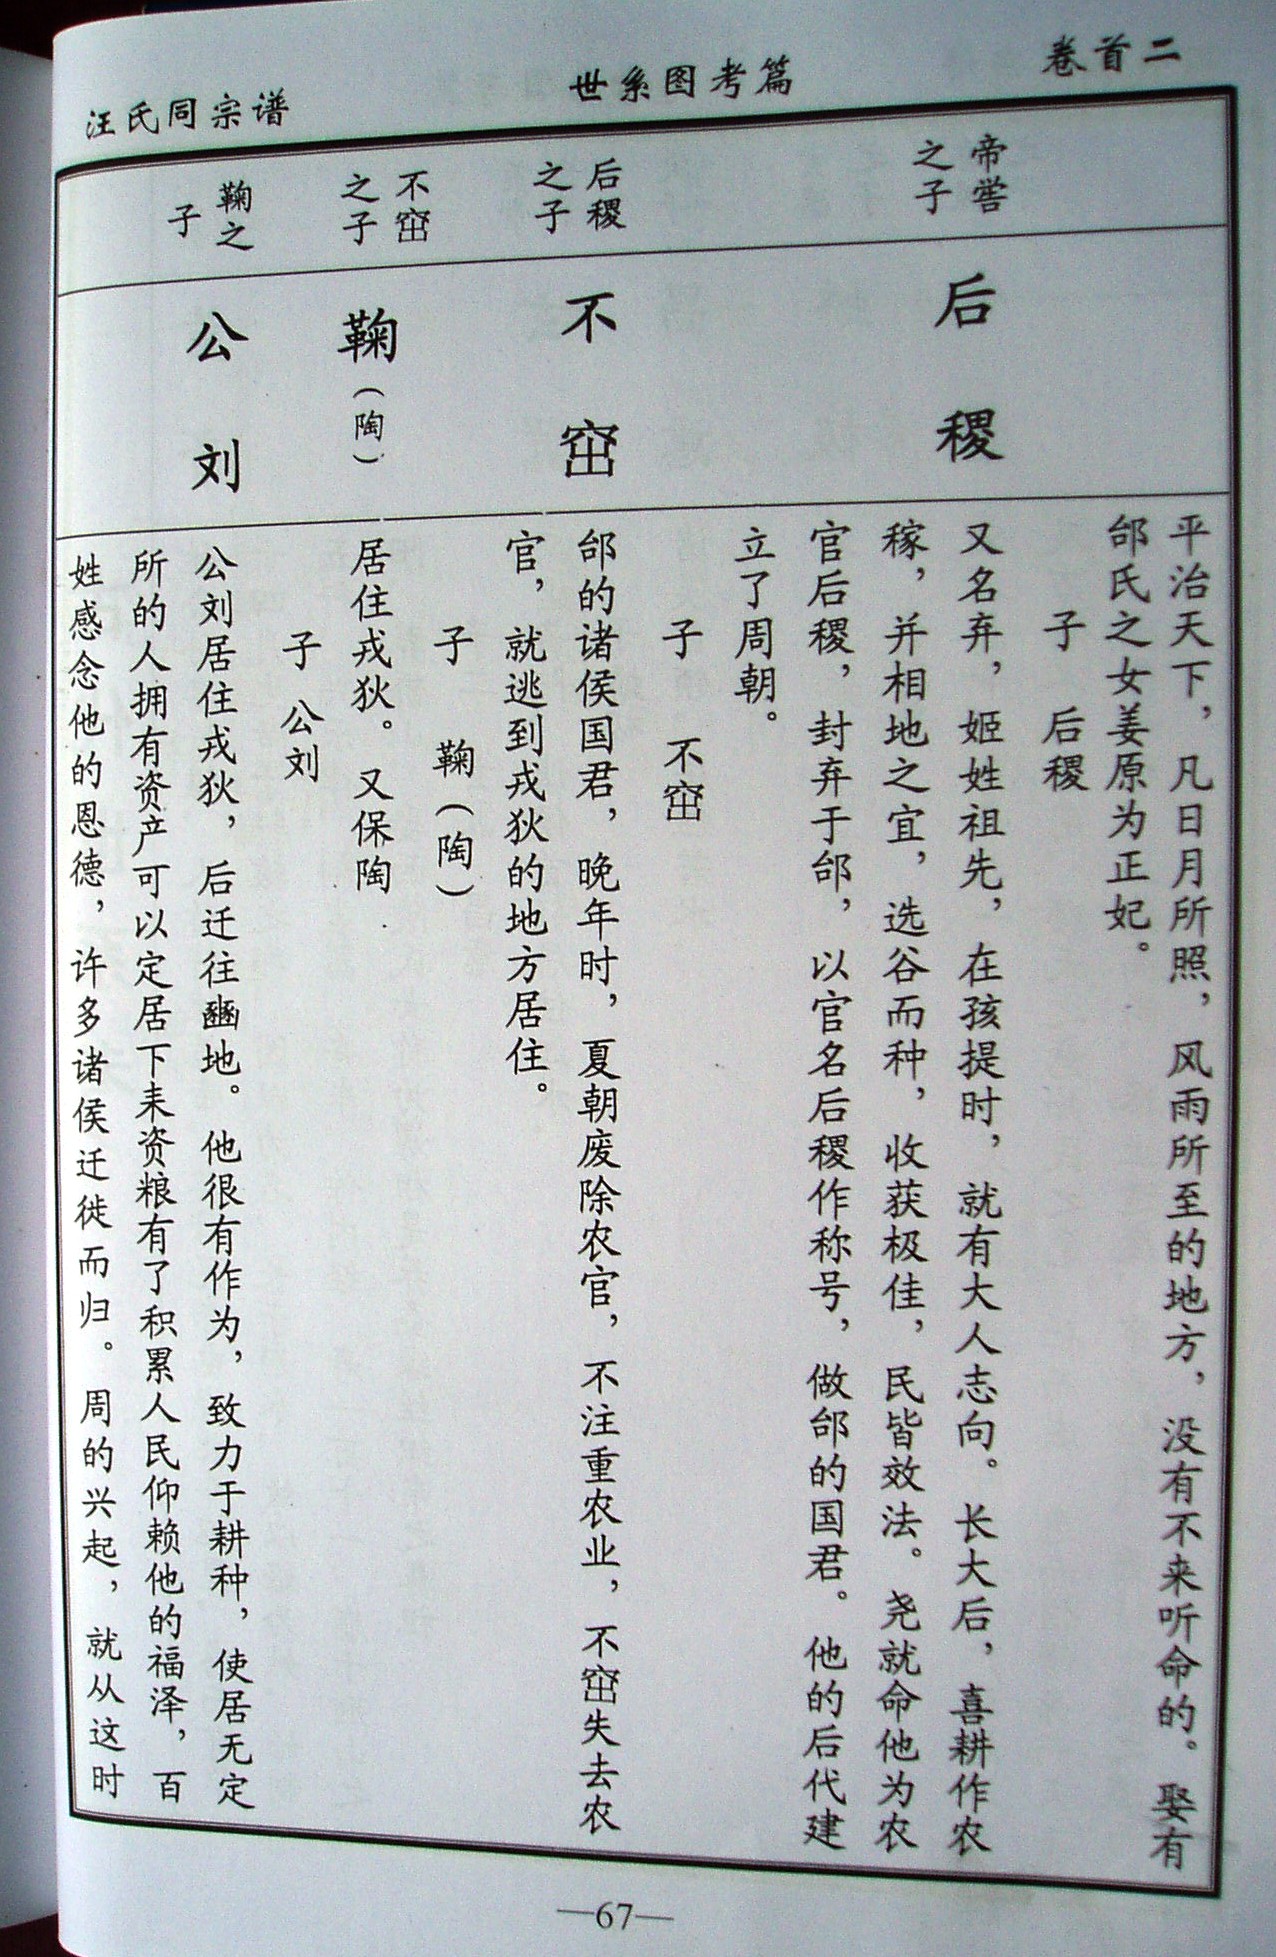 卷首二
世系图考篇
汪氏同宗谱
帝喾
之子
后稷
之子
不窋
之子
鞠之
子
后稷
不窋
鞠（陶）
公刘
平治天下，凡日月所照，风雨所至的地方，没有不来听命的。娶有
邰氏之女姜原为正妃。
子 后稷
又名弃，姬姓祖先，在孩提时，就有大人志向。长大后，喜耕作农
稼，并相地之宜，选谷而种，收获极佳，民皆效法。尧就命他为农
官后稷，封弃于邰，以官名后稷作称号，做邰的国君。他的后代建
立了周朝。
子 不窋
邰的诸侯国君，晚年时，夏朝废除农官，不注重农业，不窋失去农
官，就逃到戎狄的地方居住。
子 鞠（陶）
居住戎狄。又保陶.
子 公刘
公刘居住戎狄，后迁往豳地。他很有作为，致力于耕种，使居无定
所的人拥有资产可以定居下耒资粮有了积累人民仰赖他的福泽，百
姓感念他的恩德，许多诸侯迁徙而归。周的兴起，就从这时
—67—